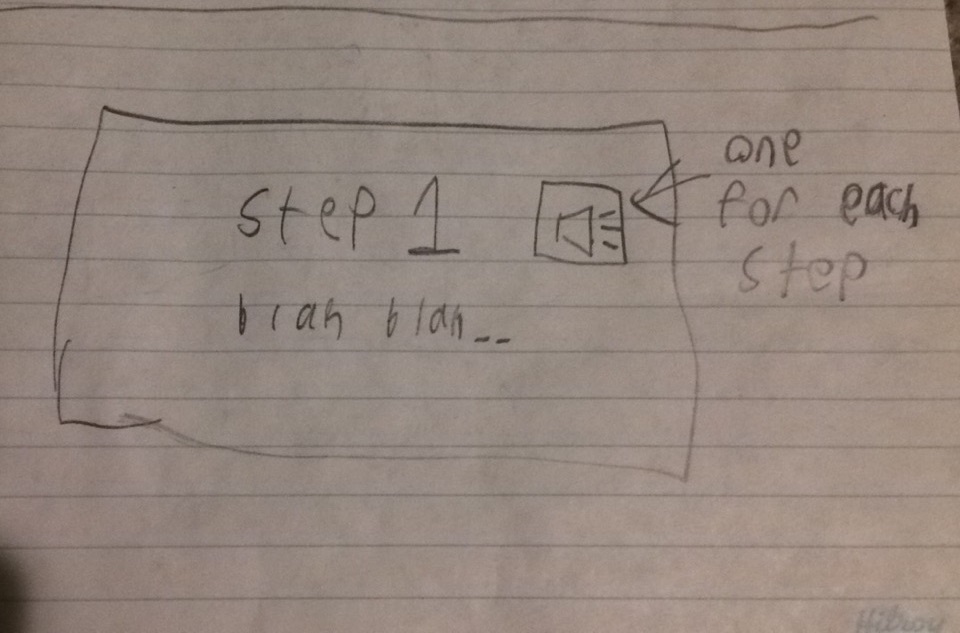 Step 1
blah blah__
one
for each
step
Hilroy